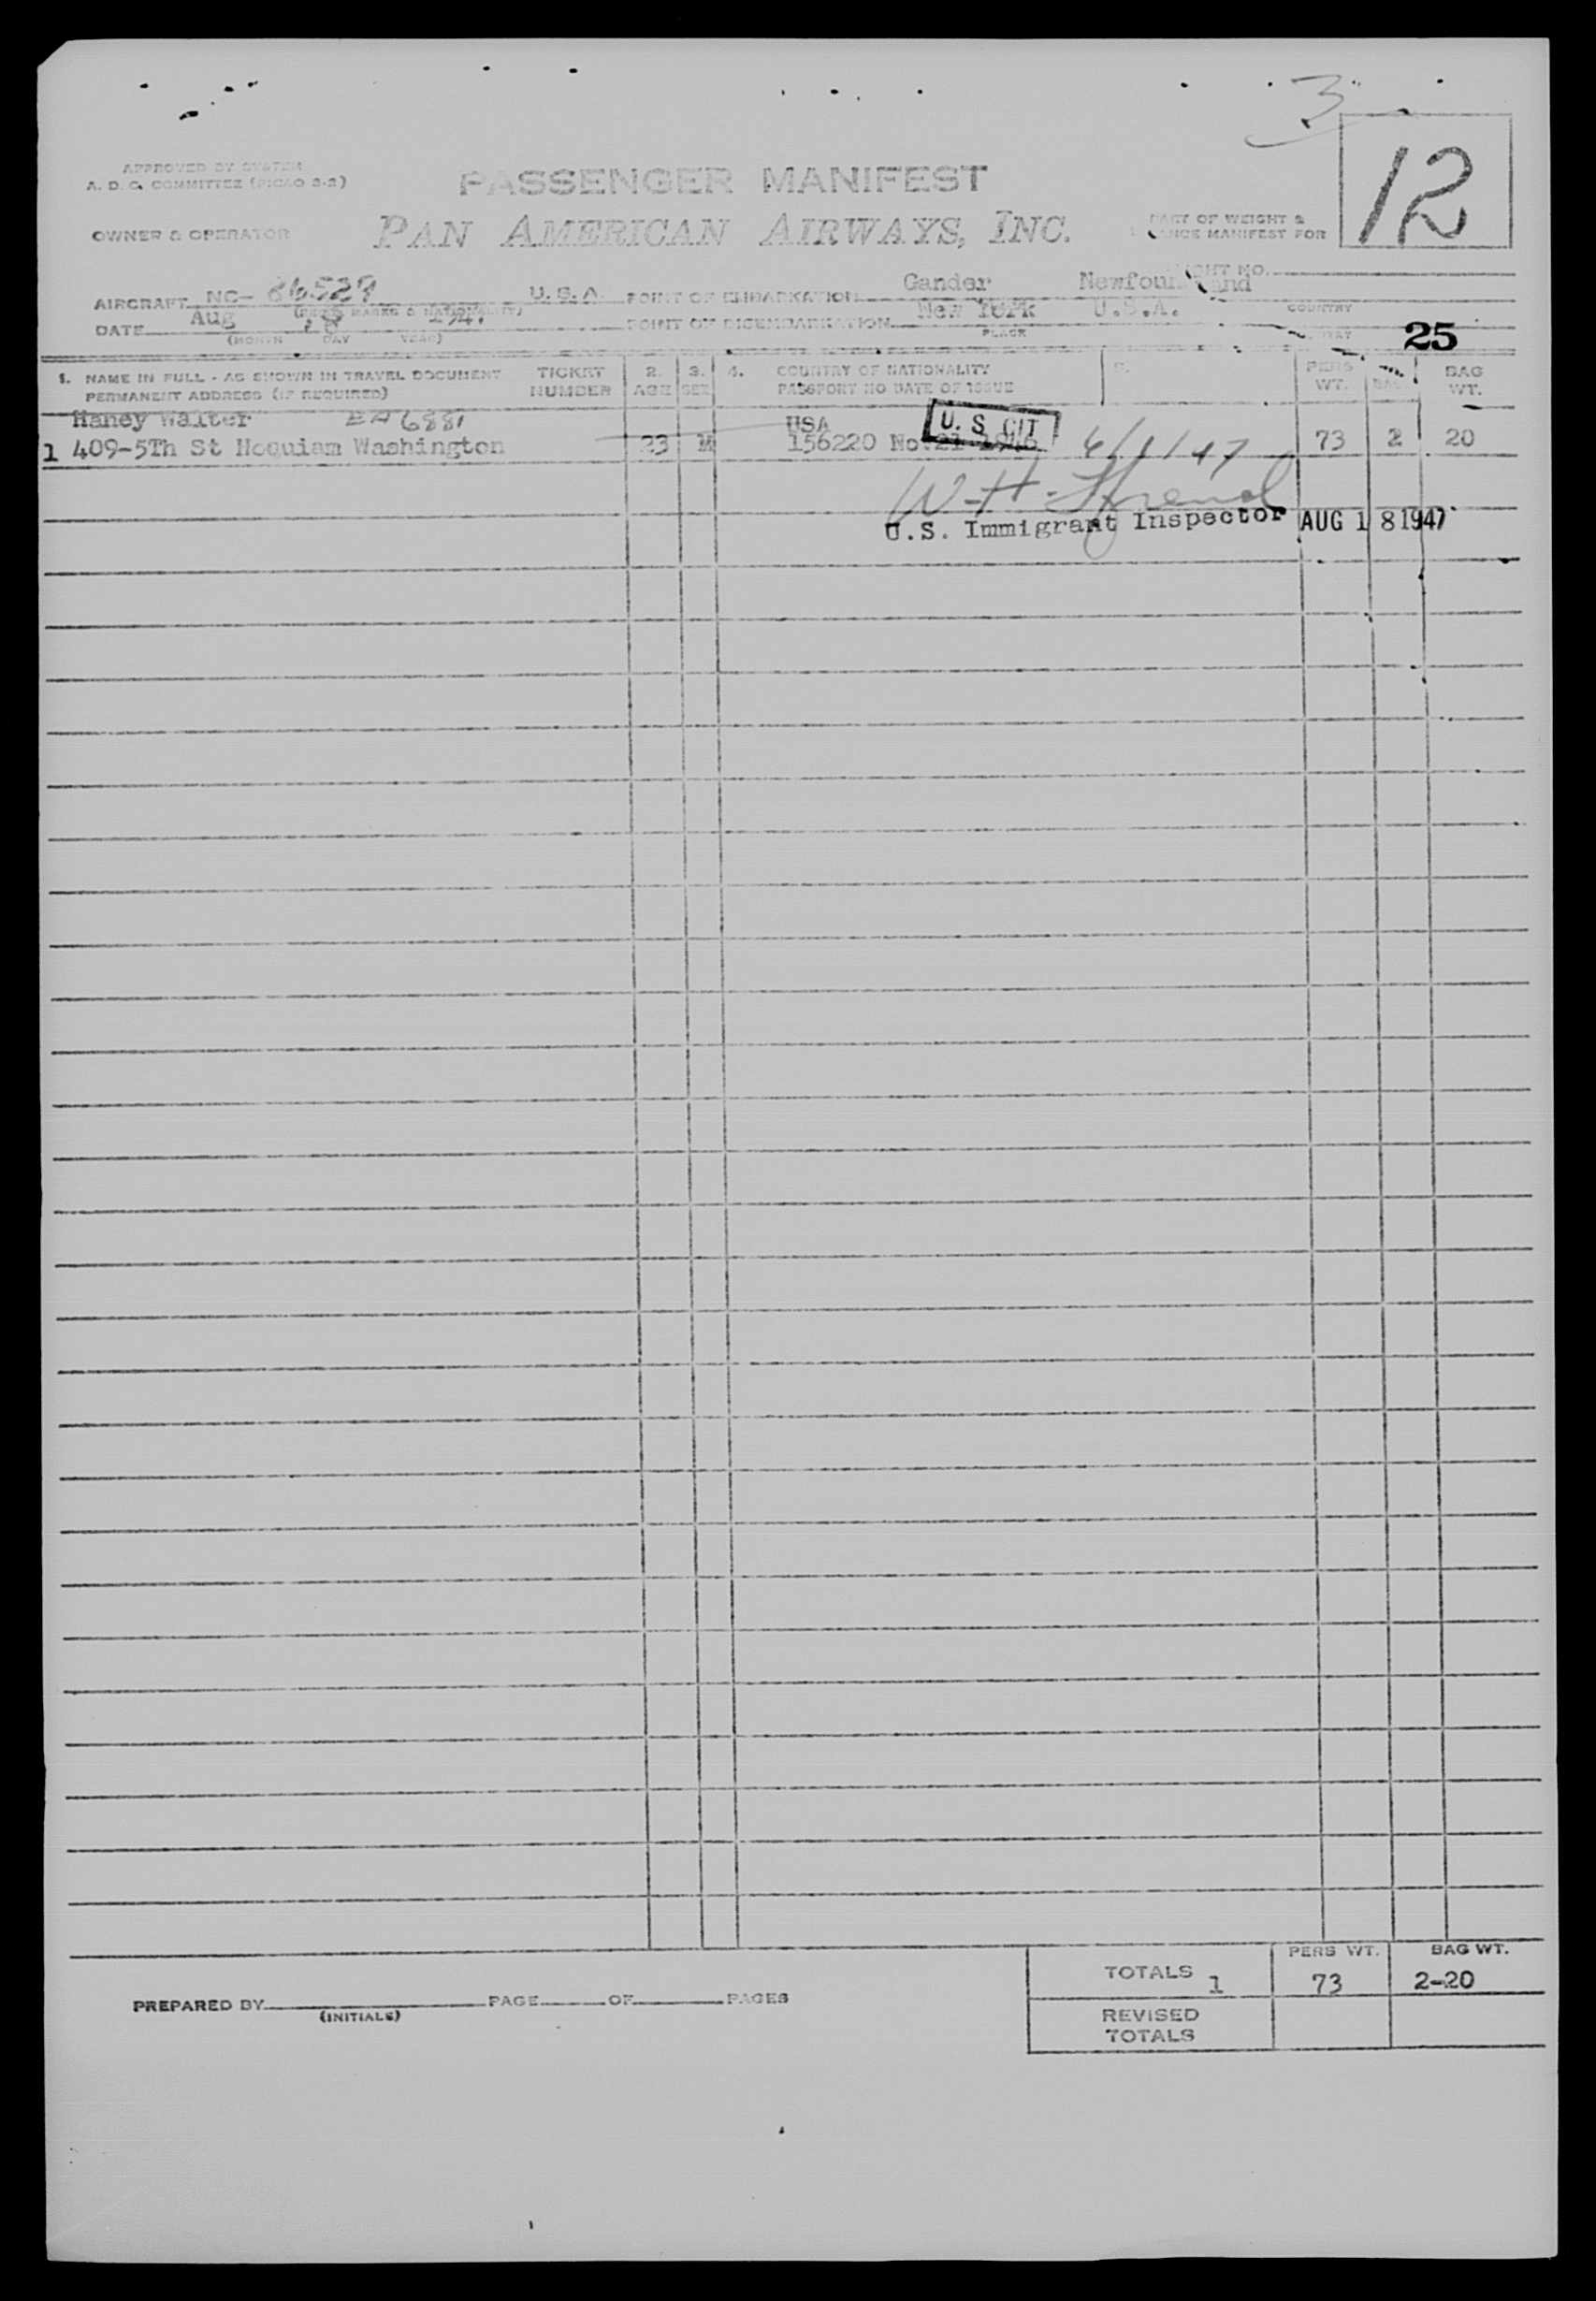 3
12
APPROVED BY SYSTEM
A. D. C. COMMITTEE (PICAO 2-2)
PASSENGER MANIFEST
OWNER & OPERATOR PAN AMERICAN AIRWAYS, INC.
PART OF WEIGHT &
MANIFEST FOR
FLIGHT NO.
AIRCRAFT NC- 86529 U.S.A. POINT OF EMBARKATION Gander Newfoundland
(REG'N MARKS & NATIONALITY) COUNTRY
DATE Aug 18 POINT OF DISEMBARKATION New York U.S.A.
(MONTH DAY YEAR) PLACE
25
1. NAME IN FULL - AS SHOWN IN TRAVEL DOCUMENT TICKET 2. 3. 4. COUNTRY OF NATIONALITY PERS BAG
PERMANENT ADDRESS (IF REQUIRED) NUMBER AGE SEX PASSPORT NO DATE OF ISSUE WT. WT.
Haney Walter USA U. S. CIT
1 409-5Th St Hoquiam Washington 23 M 156220 73 2 20
U.S. Immigrant Inspector AUG 18 1947
TOTALS 1 PERS WT. 73 BAG WT. 2-20
PREPARED BY PAGE OF PAGES
(INITIALS)
REVISED
TOTALS